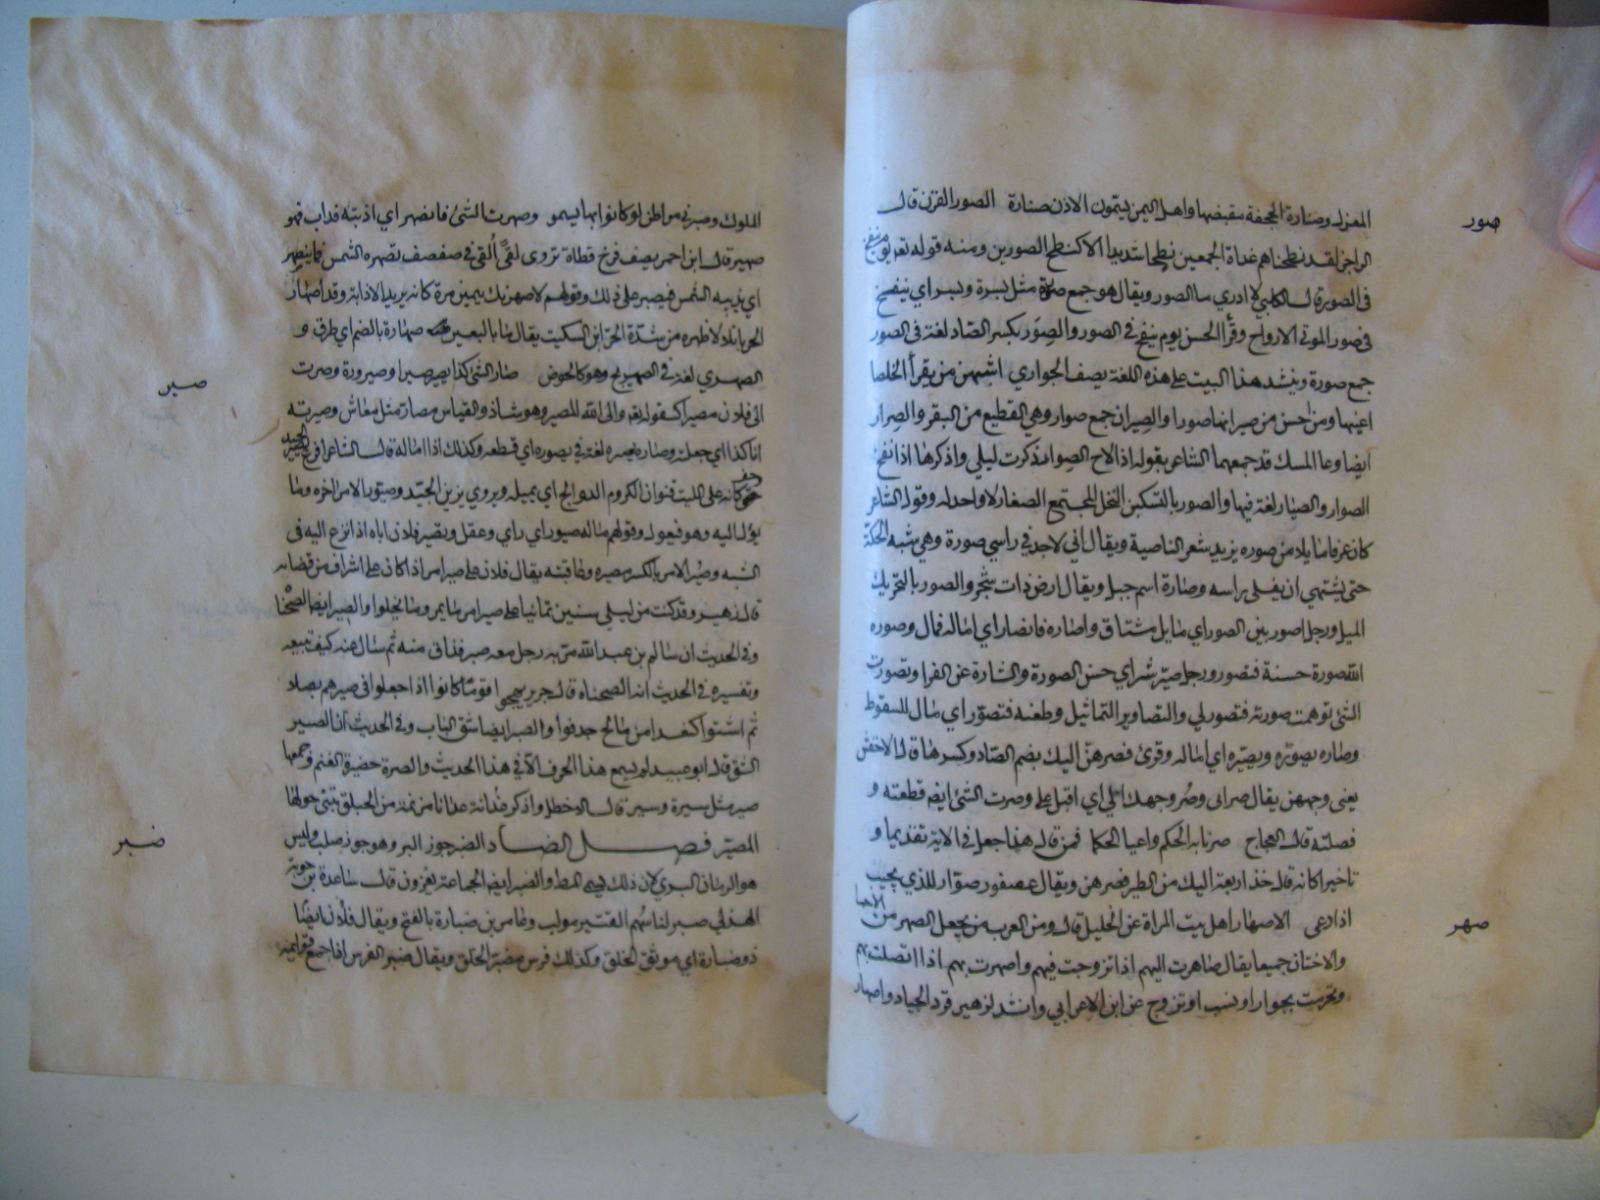 صور
المغزل وصنارة الحجفة مقبضها واهل اليمن يسمون الاذن صنارة الصور القرن قال
الراجز لقد نطحناهم غداة الجمعين نطحا شديدا لا كنطح الصورين ومنه قوله تعالى يوم ينفخ
فى الصور قال الكلبي لا ادري ما الصور ويقال هو جمع صورة مثل بسرة وبسر اي ينفخ
فى صور الموتى الارواح وقرأ الحسن يوم ينفخ فى الصور والصِوَر بكسر الصاد لغة فى الصور
جمع صورة وينشد هذا البيت على هذه اللغة يصف الجواري اشبهن من بقر الخلصا
اعينها وهن احسن من صيرانها صورا والصيران جمع صوار وهي القطيع من البقر والصوار
ايضا وعا المسك قد جمعهما الشاعر بقوله اذا لاح الصوار ذكرت ليلى واذكرها اذا نفح
الصوار والصيار لغة فيها والصور بالتسكين النخل المجتمع الصغار لا واحد له وقول الشاعر
كان عرفا مايلا من صوره يريد شعر الناصية ويقال اني لاجد في راسي صورة وهي شبه الحكة
حتى يشتهي ان يفلى راسه وصارة اسم جبل ويقال ارض ذات شجر والصور بالتحريك
الميل ورجل اصور بين الصور اي مايل مشتاق واصاره فانصار اي اماله فمال وصوره
الله صورة حسنة فتصور ورجل صيّر شير اي حسن الصورة والشارة عن الفرا وتصورت
الشئ توهمت صورته فتصور لي والتصاوير التماثيل وطعنه فتصوّر اي مال للسقوط
وصاره يصوره ويصيره اي اماله وقرئ فصرهن اليك بضم الصاد وكسرها قال الاخفش
يعنى وجههن يقال صر الى وصُر وجهك الي اي اقبل علي وصرت الشئ ايضا قطعته و
فصلته قال العجاج صرنا به الحكم واعيا الحكما فمن قال هذا جعل في الاية تقديما و
تاخيرا كانه قال خذ اليك اربعة من الطير فصرهن ويقال عصفور صوّار للذي يجيب
صهر
اذا دعى الاصهار اهل بيت المراة عن الخليل قال ومن العرب من يجعل الصهر من الاحما
والاختان جميعا يقال صاهرت اليهم اذا تزوجت فيهم واصهرت بهم اذا اتصلت بهم
وتحرمت بجوار او نسب او تزوج عن ابن الاعرابي وانشد لزهير قود الجياد واصهار
الملوك وصبر في مواطن لو كانوا بها سيموا وصهرت الشئ فانصهر اي اذبته فذاب فهو
صهير قال ابن احمر يصف فرخ قطاة تروى لقىً أُلقى في صفصف تصهره الشمس فما ينصهر
اي تذيبه الشمس فيصبر على ذلك وقولهم لاصهرنك بيمين مرة كانه يريد الاذابة وقد اصهار
الحربا تلالا ظهره من شدة الحر ابن السكيت يقال ما بالبعير صهارة بالضم اي طرق و
صير
الصهري لغة في الصهريج وهو كالحوض صار الشئ كذا يصير صيرا وصيرورة وصرت
الى فلان مصيرا كقوله تعالى والى الله المصير وهو شاذ والقياس مصار مثل معاش وصيرته
انا كذا اي جعلته وصاره يصيره لغة في يصوره اي قطعه وكذلك اذا اماله قال الشاعر وفرع يصير الجيد
وحف كانه على الليت قنوان الكروم الدوالح اي يميله ويروى يزين الجيد وصيور الامر اخره وما
يؤل اليه وهو فيعول وقولهم ماله صيور اي راي وعقل وتصير فلان اباه اذا نزع اليه فى
الشبه وصِير الامر بالكسر مصيره وعاقبته يقال فلان على صير امر اذا كان على اشراف من قضائه
قال زهير وقد كنت من ليلى سنين ثمانيا على صير امر ما يمر وما يحلوا والصير ايضا الصحناة
وفي الحديث ان سالم بن عبد الله مر به رجل معه صير فذاق منه ثم سال عنه كيف تبيعه
وتفسيره في الحديث انه الصحناه قال جرير يهجو قوما كانوا اذا جعلوا في صيرهم بصلا
ثم اشتووا كنعدا من مالح جدفوا والصير ايضا شق الباب وفي الحديث ان الصير
الشق قال ابو عبيد لم يسمع هذا الحرف الا في هذا الحديث والصيرة حضيرة الغنم وجمعها
صير مثل سيرة وسير قال الاخطل واذكر غدانة عدانا مزنمة من الحبلق تبنى حولها
ضبر
الصير فصل الضاد الضبر جوز البر وهو جوز صلب وليس
هو الرمان البري لان ذلك يسمى المظ والضبر ايضا الجماعة يغزون قال ساعدة بن جوية
الهذلي ضبر لباسهم القتير مولب وعامر بن ضبارة بالفتح ويقال فلان ايضا
ذو ضبارة اي موثق الخلق وكذلك فرس مضبر الخلق ويقال ضبر الفرس اذا جمع قوايمه